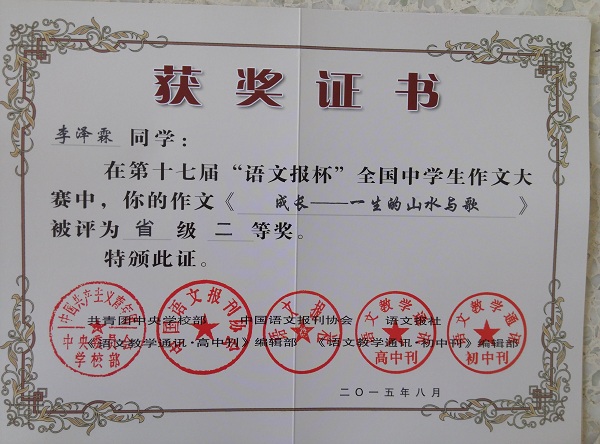 获奖证书
李泽霖 同学：
在第十七届“语文报杯”全国中学生作文大
赛中，你的作文《 成长——一生的山水与歌 》
被评为 省 级 二 等奖。
特颁此证。
共青团中央学校部 中国语文报刊协会 语文报社
《语文教学通讯·高中刊》编辑部 《语文教学通讯·初中刊》编辑部
中国共产主义青年团
中央
学校部
中国语文报刊协会
语文报社
语文教学通讯
高中刊
语文教学通讯
初中刊
二〇一五年八月